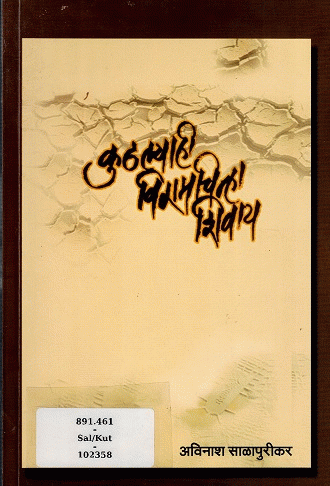 कुठल्याही
विरामचिन्हा
शिवाय
891.461
-
Sal/Kut
-
102358
अविनाश साळापुरीकर